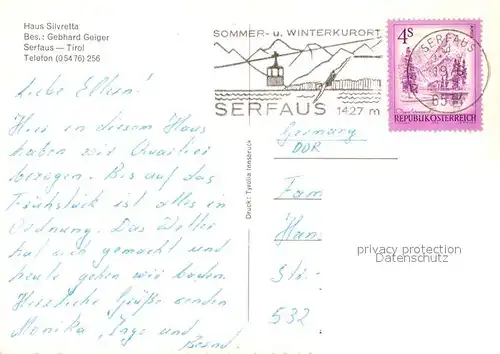 Haus Silvretta
Bes.: Gebhard Geiger
Serfaus — Tirol
Telefon (05476) 256
SOMMER- u. WINTERKURORT
SERFAUS 1427 m
SERFAUS
4S
REPUBLIK ÖSTERREICH
Liebe Eltern!
Hier in diesem Haus
haben wir Quartier
bezogen. Bis auf das
Frühstück ist alles in
Ordnung. Das Wetter
hat sich gemacht und
heute gehen wir baden.
Herzliche Grüße senden
Monika, Ingo und
Bernd.
Druck: Tyrolia Innsbruck
Germany
DDR
Fam
Han
532
privacy protection